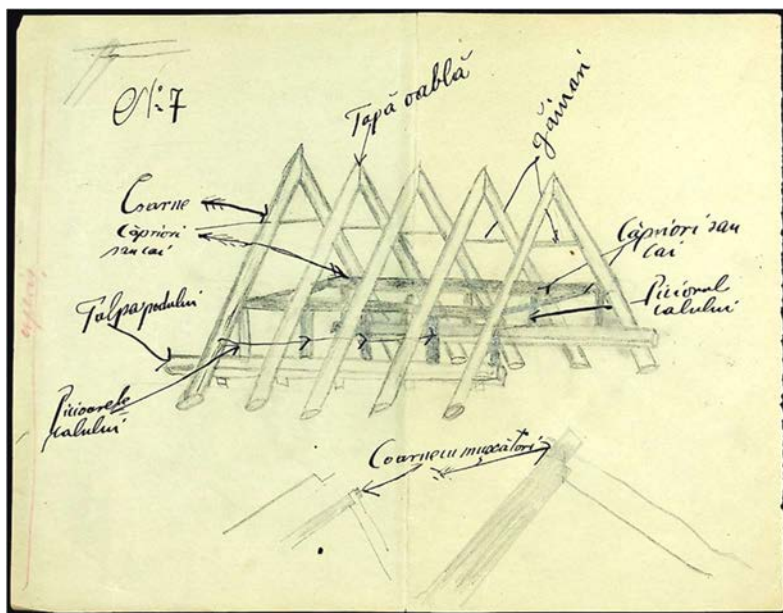 No: 7
Țapă oablă
găinari
Coarne
Căpriori
sau cai
Căpriori sau
cai
Talpa podului
Piciorul
calului
Picioarele
calului
Coarne cu mușcători